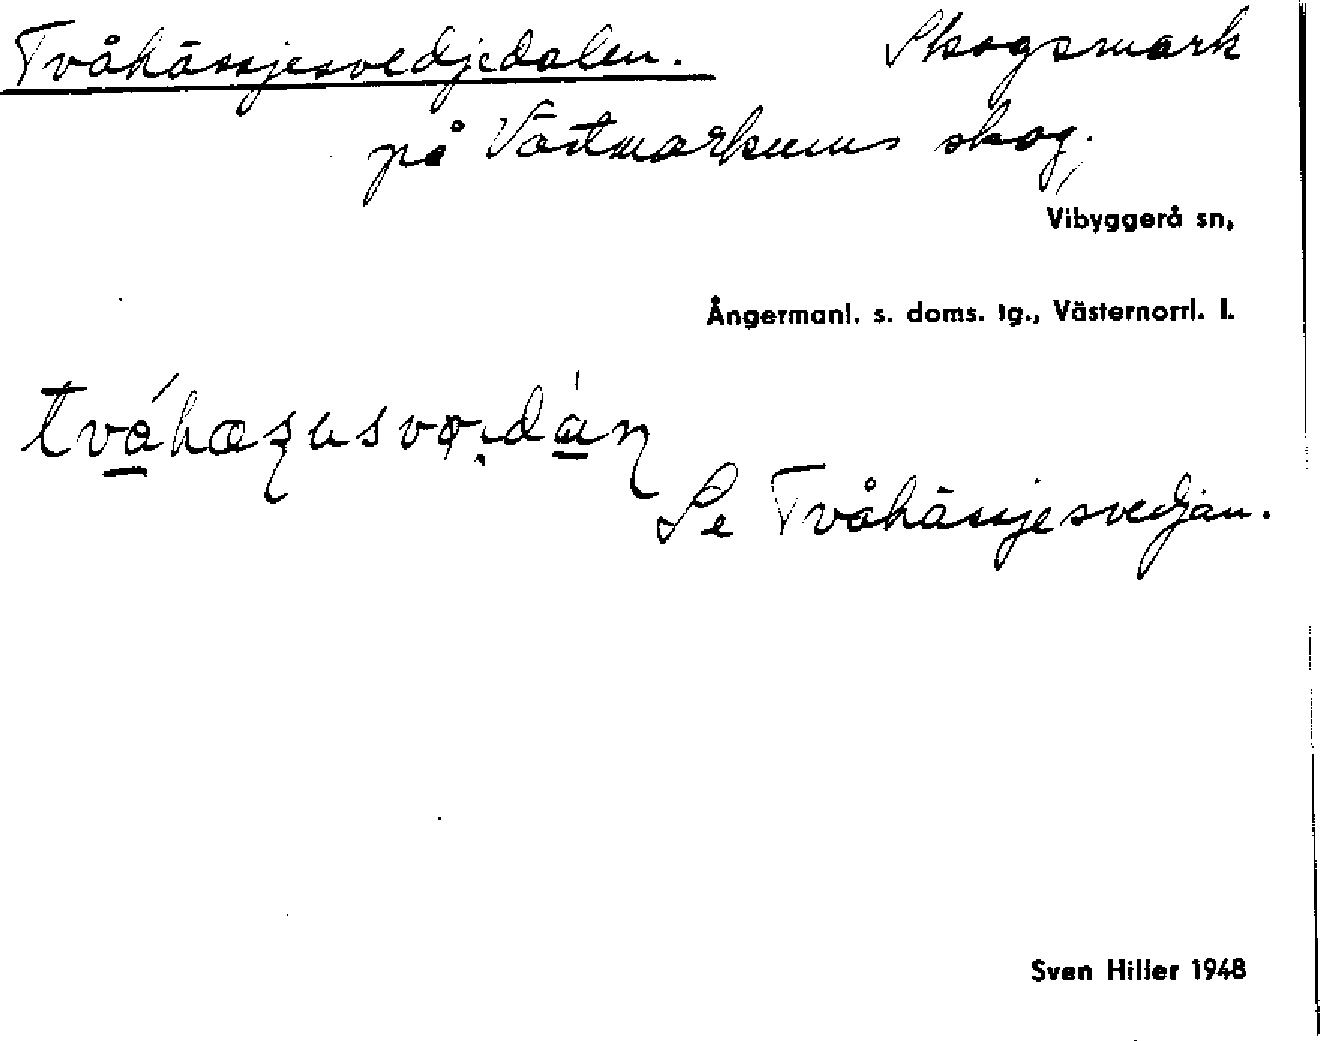 Tvåhässjesvedjedalen. Skogsmark
på Västmarkums skog,
Vibyggerå sn,
Ångermanl. s. doms. tg., Västernorrl. l.
Se Tvåhässjesvedjan.
Sven Hiller 1948